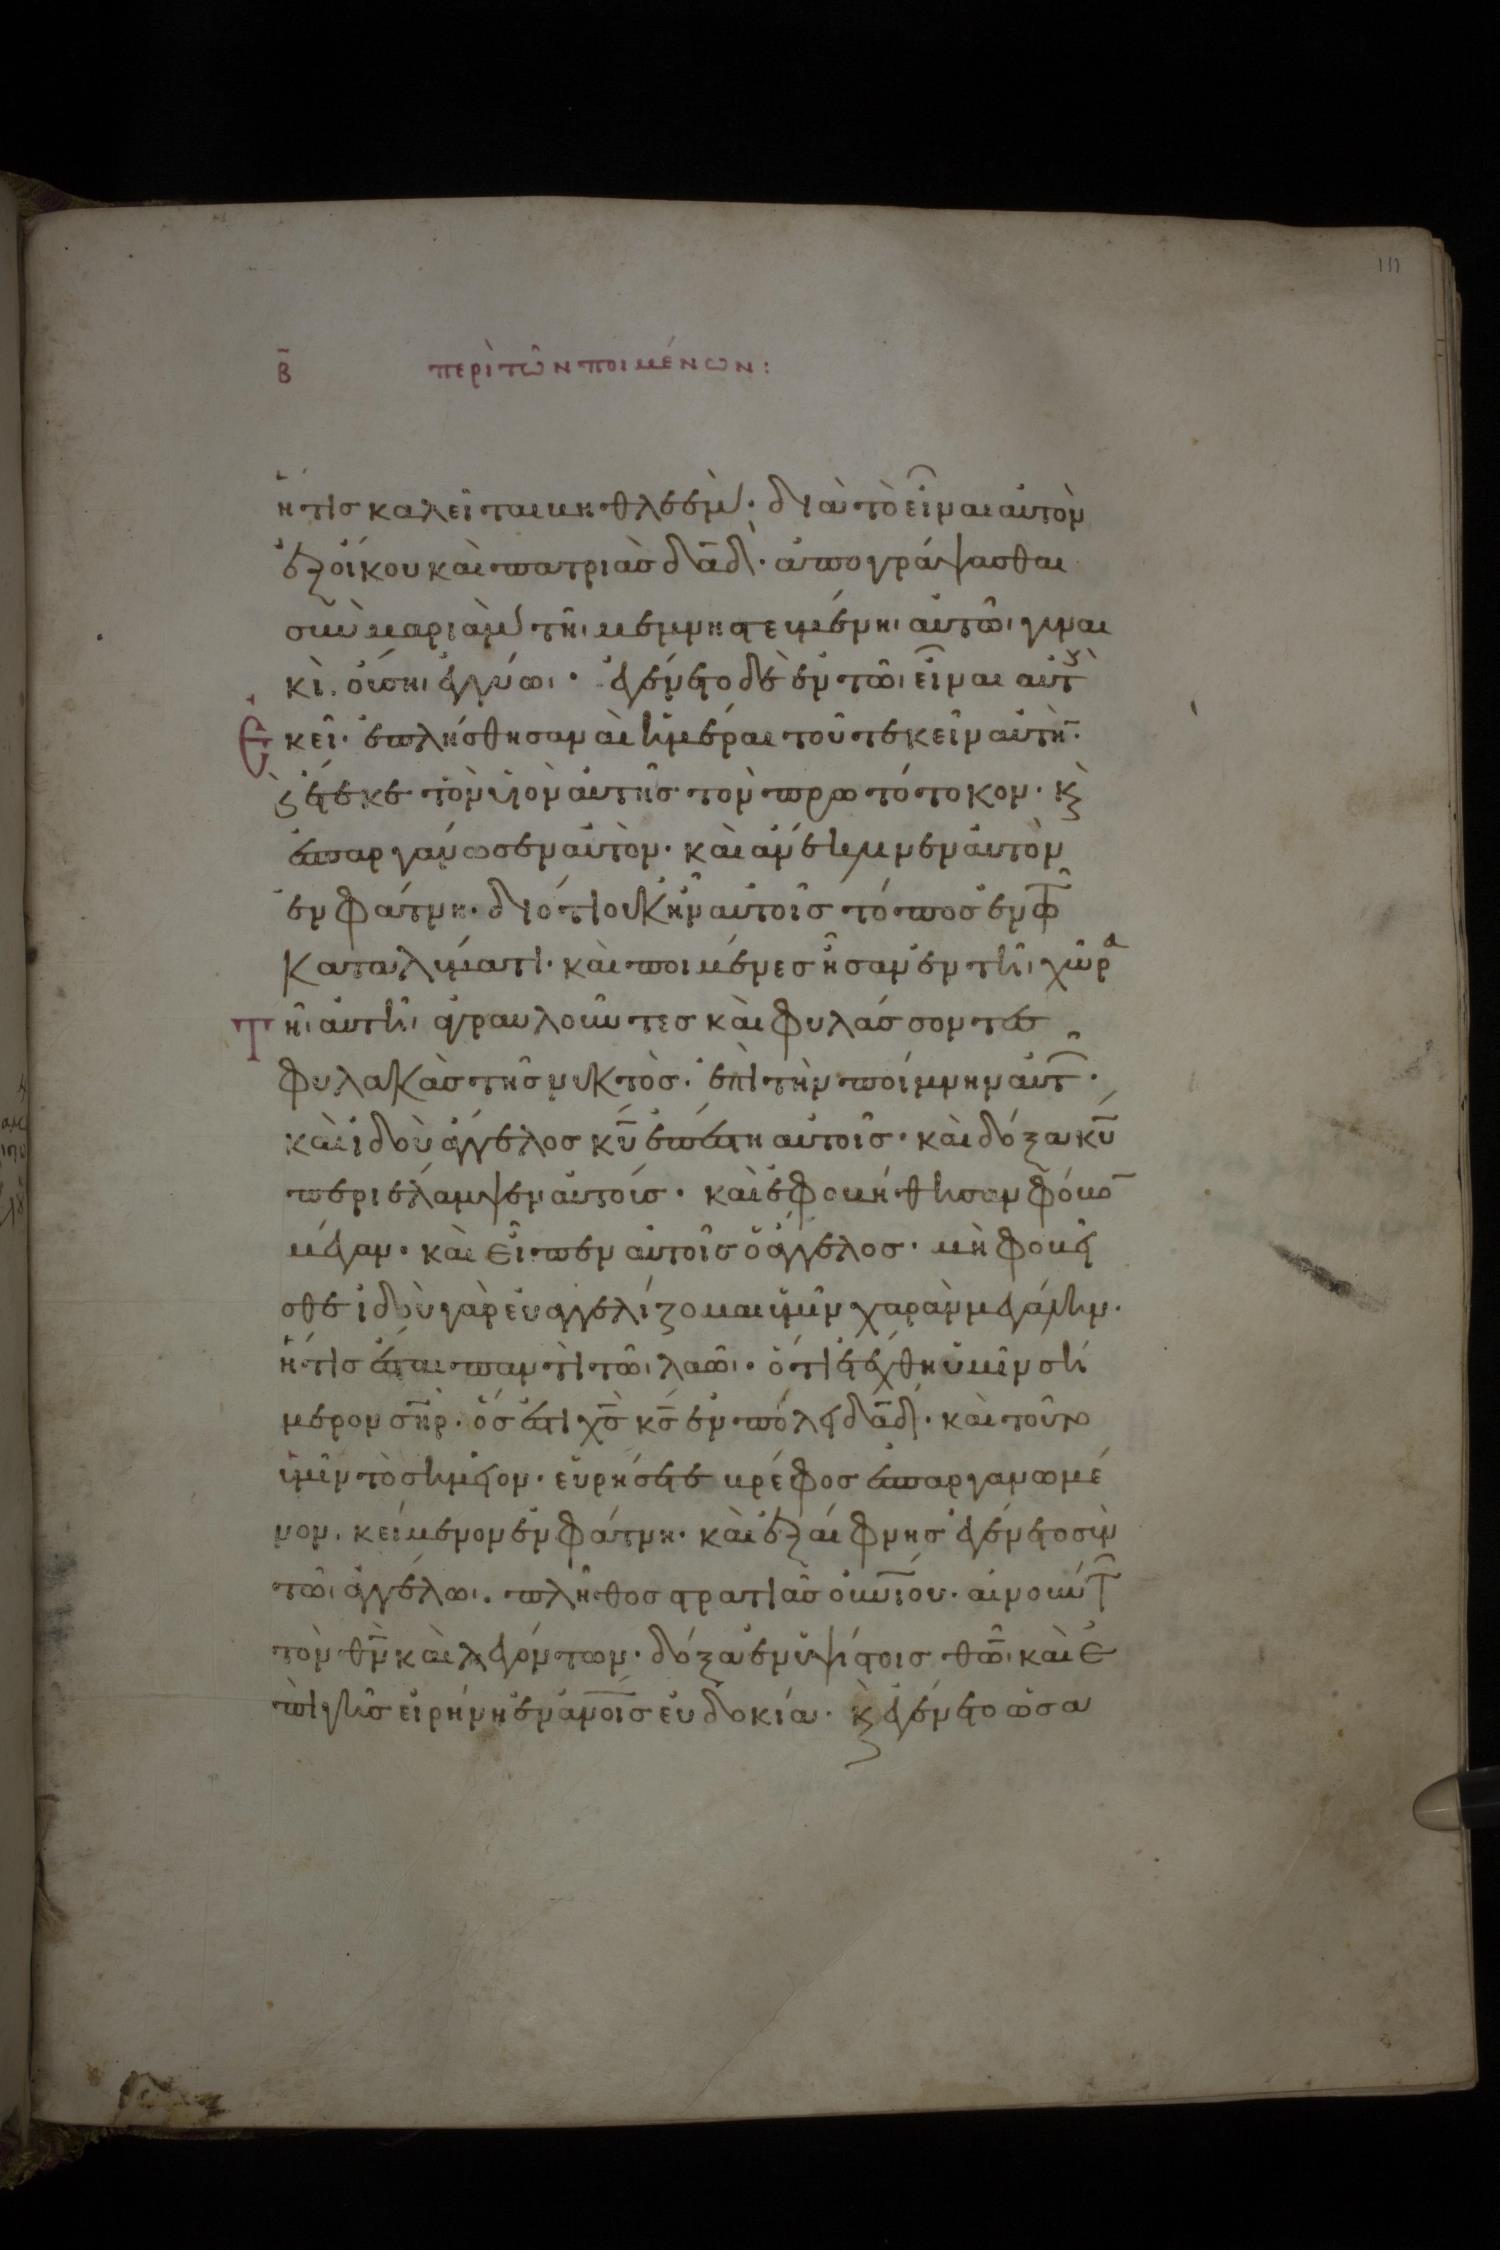 111
β̄ περὶ τῶν ποιμένων:
ἥτις καλεῖται βηθλεέμ· διὰ τὸ εἶναι αὐτὸν
ἐξ οἴκου καὶ πατριᾶς δᾱδ· ἀπογράψασθαι
σὺν μαριὰμ τῆι μεμνηστευμένηι αὐτῶι γυναι
κὶ. οὔσηι ἐγκύωι· ἐγένετο δὲ ἐν τῶι εἶναι αὐτ
Ἐκεῖ· ἐπλήσθησαν αἱ ἡμέραι τοῦ τεκεῖν αὐτὴ̄·
ϗ ἔτεκε τὸν υἱὸν αὐτῆς τὸν πρωτότοκον· ϗ
ἐσπαργάνωσεν αὐτὸν· καὶ ἀνέκλινεν αὐτὸν
ἐν φάτνη· διότι οὐκ ἦν αὐτοῖς τόπος ἐν τῶ
καταλύματι· καὶ ποιμένες ἦσαν ἐν τῆι χώρα
Τῆι αὐτῆι ἀγραυλοῦντες καὶ φυλάσσοντες
φυλακὰς τῆς νυκτὸς· ἐπὶ τὴν ποίμνην αὐτ·
καὶ ἰδοὺ ἄγγελος κῡ ἐπέστη αὐτοῖς· καὶ δόξα κῡ
περιέλαμψεν αὐτοίς· καὶ ἐφοβήθησαν φόβο̄
μέγαν· καὶ εἶπεν αὐτοῖς ὁ ἄγγελος· μὴ φοβεῖ
σθε ἰδοὺ γὰρ εὐαγγελίζομαι ὑμῖν χαρὰν μεγάλην·
ἥτις ἔσται παντὶ τῶι λαῶι· ὅτι ἐτέχθη ὑμῖν σή
μερον σ̄ηρ· ὅς ἐστι χ̄ς κ̄ς ἐν πόλει δᾱδ· καὶ τοῦτο
ὑμῖν τὸ σημεῖον· εὑρήσετε βρέφος ἐσπαργανωμέ
νον. κείμενον ἐν φάτνη· καὶ ἐξαίφνης ἐγένετο σὺν
τῶι ἀγγέλωι. πλῆθος στρατιᾶς οὐνῑου· αἰνούντ
τὸν θ̄ν καὶ λεγόντων· δόξα ἐν ὑψίστοις θ̄ωι καὶ ἐ
πὶ γῆς εἰρήνη ἐν ἀν̄οις εὐδοκία· ϗ ἐγένετο ὡσα